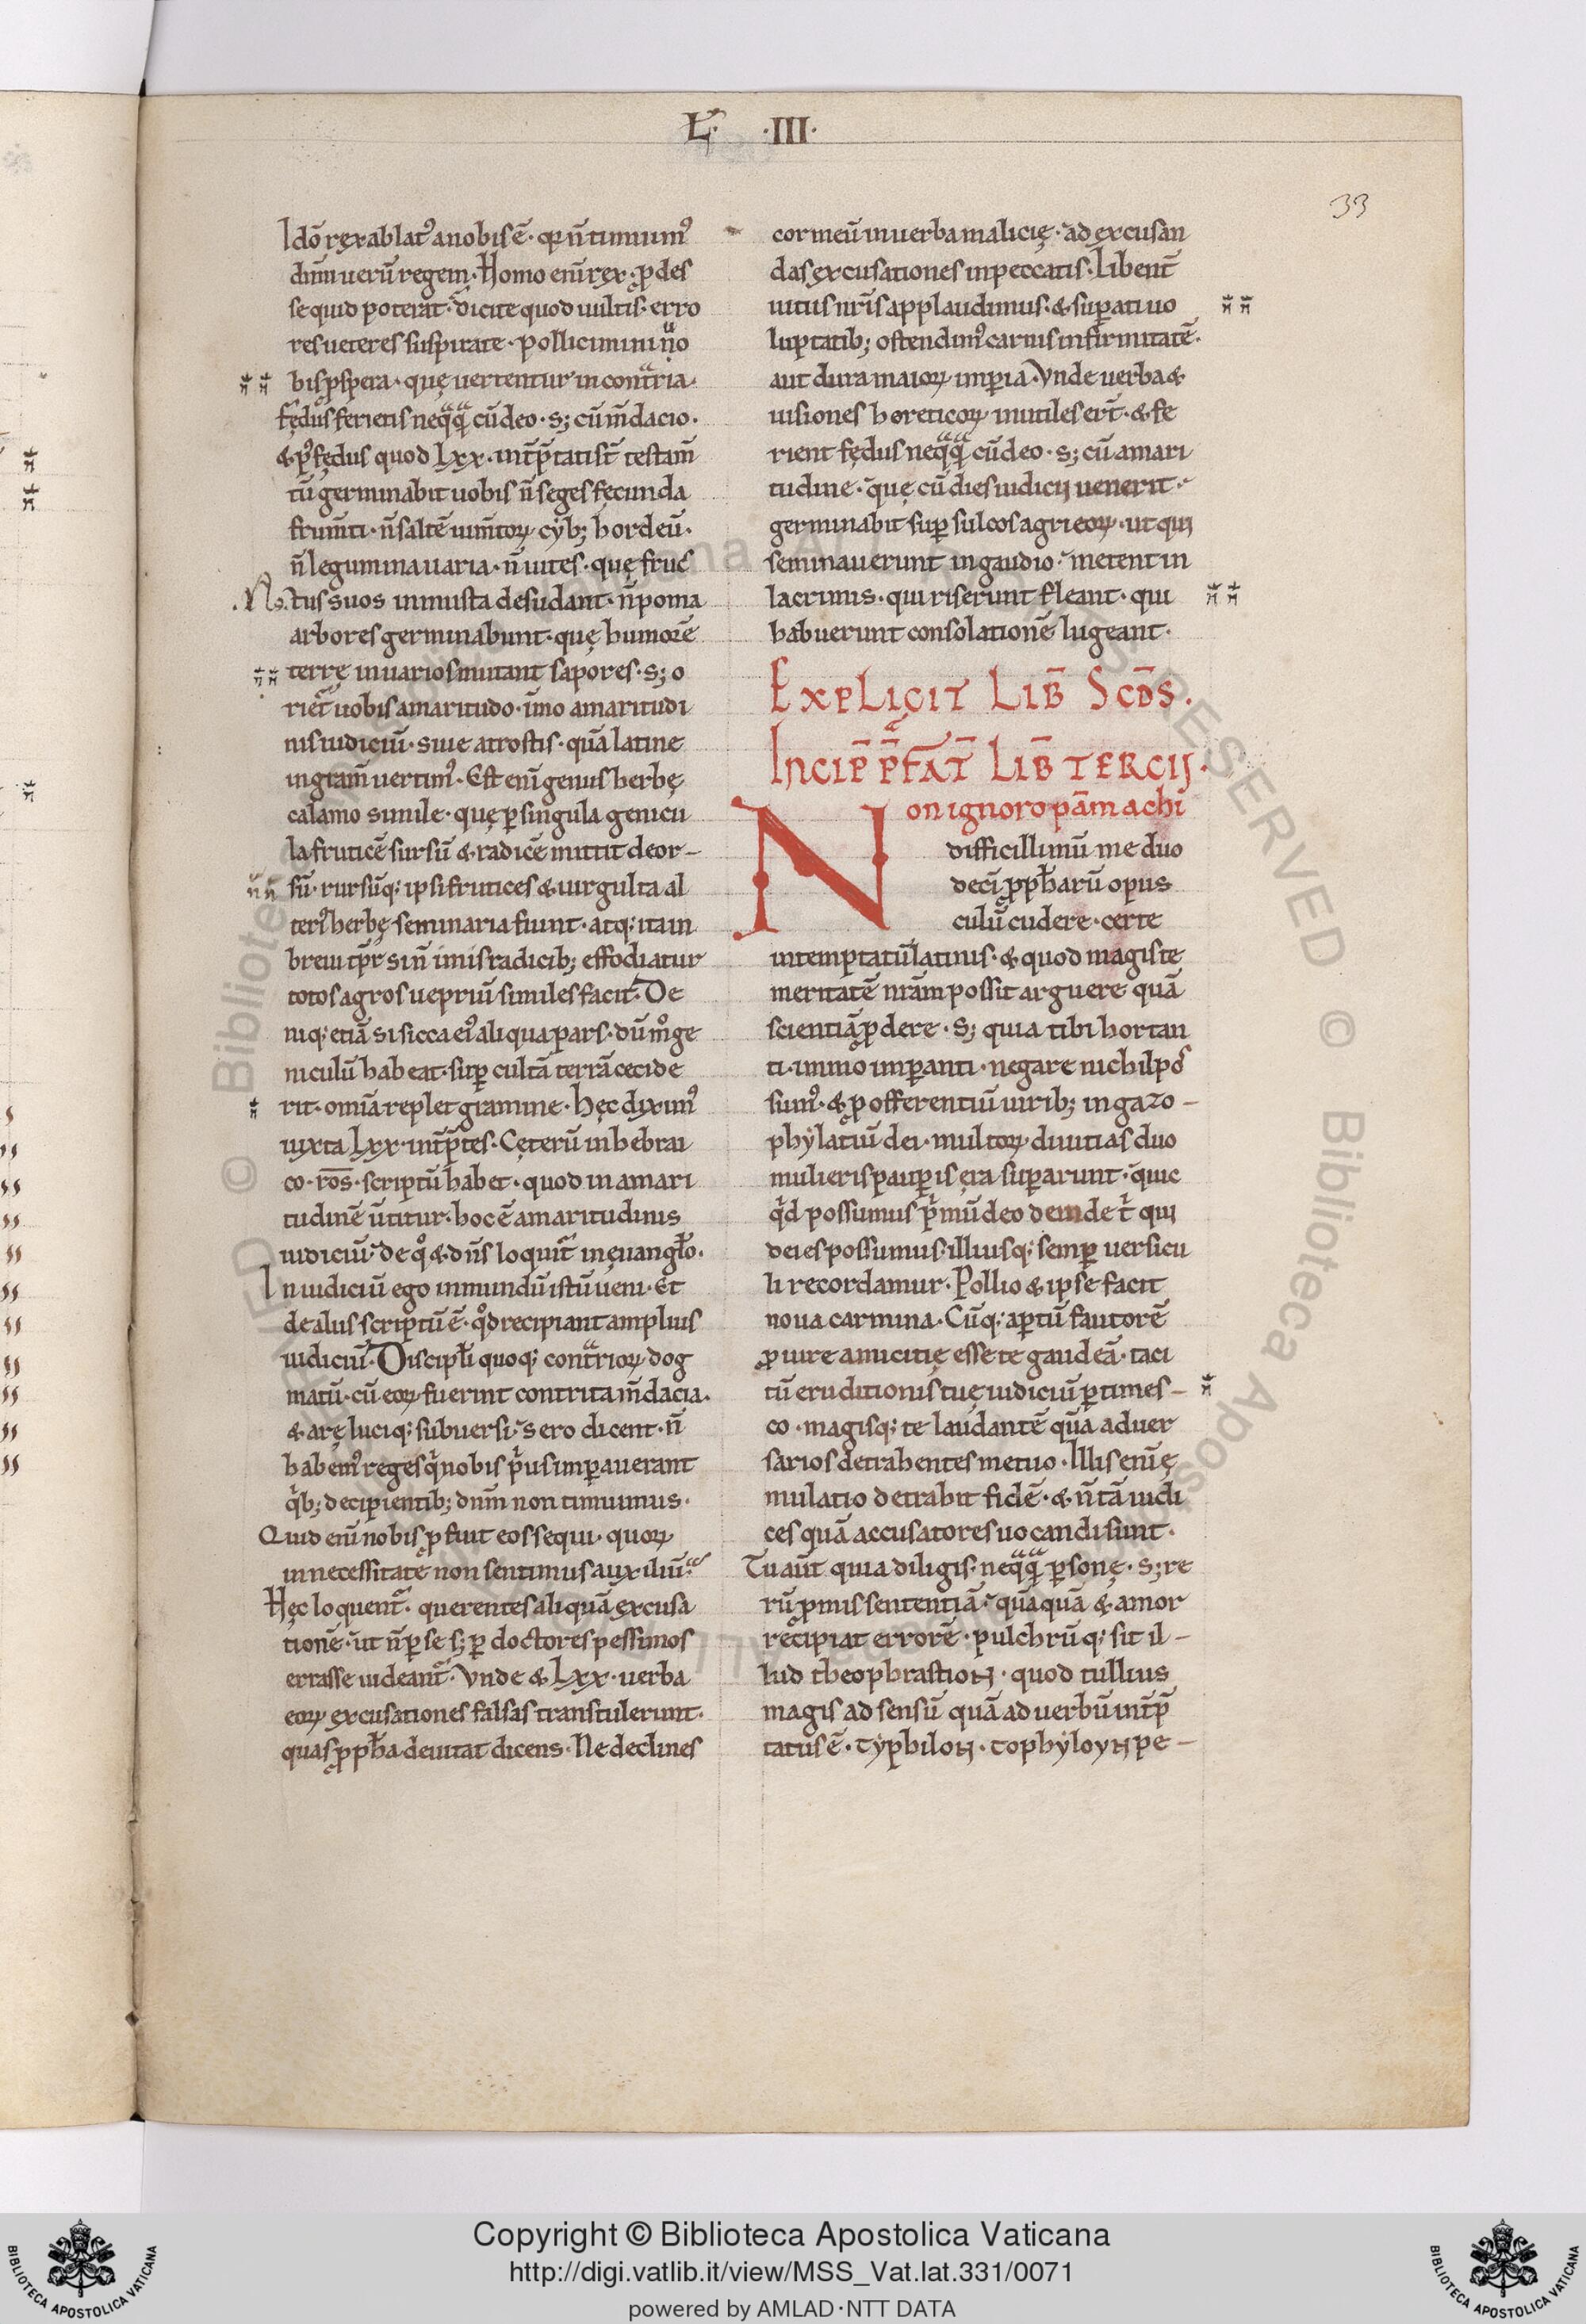 L· ·III·
33
Idō ręx ablatꝰ a nobis ē · q̄ꝛ n̄ timuimꝰ
dn̄m ueru̅ regem · Homo eni̅ rex · ꝓdes
se quid poterat · dicite quod uultis · erro
res ueteres suspirate · pollicimini n̄o
bis ꝓspera · quę uertentur in contraria ·
fędus ferietis neqq̄ cū deo · s; cū m̄dacio ·
& ꝓ fędus quod Lxx · int̄p̄tati st̄ testam̄
tū germinabit uobis n̄ seges fęcunda
frum̄ti · n̄ saltē ium̄toꝝ cyb; hordeū ·
n̄ legumina uaria · n̄ uites · quę fruc
tus suos in musta desudant · n̄ poma
arbores germinabunt · quę humorē
terrę in uarios mutant sapores · s; o
riet̄ uobis amaritudo · im̄o amaritudi
nis iudiciū · siue atrostis · quā latine
in gram̄ uertimꝰ · Est eni̅ genus herbę
calamo simile · quę ꝑ singula genicu
la fruticē sursū & radicē mittit deor-
sū · rursūq; ipsi frutices & uirgulta al
teriꝰ herbę seminaria fiunt · atq; ita in
breui tp̄r si n̄ imis radicib; effodiatur
totos agros ueprium similes facit · De
niq; etiā si sicca eiꝰ aliqua pars · dūmo ge
niculū habeat · suꝑ cultā terrā cecide
rit · omīa replet gramine · Hęc diximꝰ
iuxta Lxx · int̄p̄tes · Cęterū in hebrai
co · rōs · scriptū habet · quod in amari
tudinē ūtitur · hoc ē amaritudinis
iudiciū · de q̊ & dn̄s loquit̄ in ęuanglo ·
In iudiciū ego in mundū istū ueni · Et
de aliis scriptū ē · qd̊ recipiant amplius
iudiciū · Discipli quoq; contrarioꝝ dog
matū · cū eoꝝ fuerint contrita m̄dacia ·
& arę luciq; subuersi · sero dicent · n̄
habemꝰ reges qi nobis prius imꝑauerant
qib; decipientib; dn̄m non timuimus ·
Quid eni̅ nobis ꝓfuit eos sequi · quoꝝ
in necessitate non sentimus auxiliū ·
Hęc loquent̄ · querentes aliquā excusa
tionē · ut n̄ ꝑ se s; ꝑ doctores pessimos
errasse uideant̄ · Vnde & Lxx · uerba
eoꝝ excusationes falsas transtulerunt ·
quas ꝓph̄a deuitat dicens · Ne declines
cor meū in uerba malicię · ad excusan
das excusationes in peccatis · Libent̄
uitiis nr̄is applaudimus · & suꝑati uo
luptatib; ostendimꝰ carnis infirmitatē ·
aut dura maioꝝ imꝑia · Vnde uerba &
uisiones hereticoꝝ inutiles ert̄ · & fe
rient fędus neqq̄ cū deo · s; cū amari
tudine · quę cū dies iudicij uenerit ·
germinabit suꝑ sulcos agri eoꝝ · ut qui
seminauerunt in gaudio · metent in
lacrimis · qui riserunt fleant · qui
habuerunt consolationē lugeant ·
Explicit Lib̄ Scd̄s ·
Incip̄ p̄fat̄ Lib̄ tercij ·
Non ignoro pāmachi
difficillimū me duo
deci̅ ꝓph̄arū opus
culū cudere · certe
intemptatū latinis · & quod magis te
meritatē nr̄am possit arguere quā
scientiā ꝓdere · s; quia tibi hortan
ti · immo imꝑanti · negare nichil pos
sumꝰ · & ꝓ offerentiū uirib; in gazo-
phylatiū dei · multoꝝ diuitias duo
mulieris pauꝑis ęra suꝑarunt · quic
qid possumus primū deo deinde t̄ qui
dei es possumus · illiusq; semꝑ uersicu
li recordamur · Pollio & ipse facit
noua carmina · Cūq; aꝑtū fautorē
ꝓ iure amicitię esse te gaudeā · taci
tū eruditionis tuę iudiciū ꝑtimes-
co · magisq; te laudantē quā aduer
sarios detrahentes metuo · Illis eni̅ ę
mulatio detrahit fidē · & n̄ tā iudi
ces quā accusatores uocandi sunt ·
Tu aūt quia diligis · neqq̄ ꝑsonę · s; re
rū ꝓmis sententiā · quāquā & amor
recipiat errorē · pulchrūq; sit il-
lud theophrastioн · quod tullius
magis ad sensū quā ad uerbū int̄p̄
tatus ē · Typhiloн · tophyloyн pe-
Copyright © Biblioteca Apostolica Vaticana
http://digi.vatlib.it/view/MSS_Vat.lat.331/0071
powered by AMLAD·NTT DATA
BIBLIOTECA APOSTOLICA VATICANA
BIBLIOTECA APOSTOLICA VATICANA